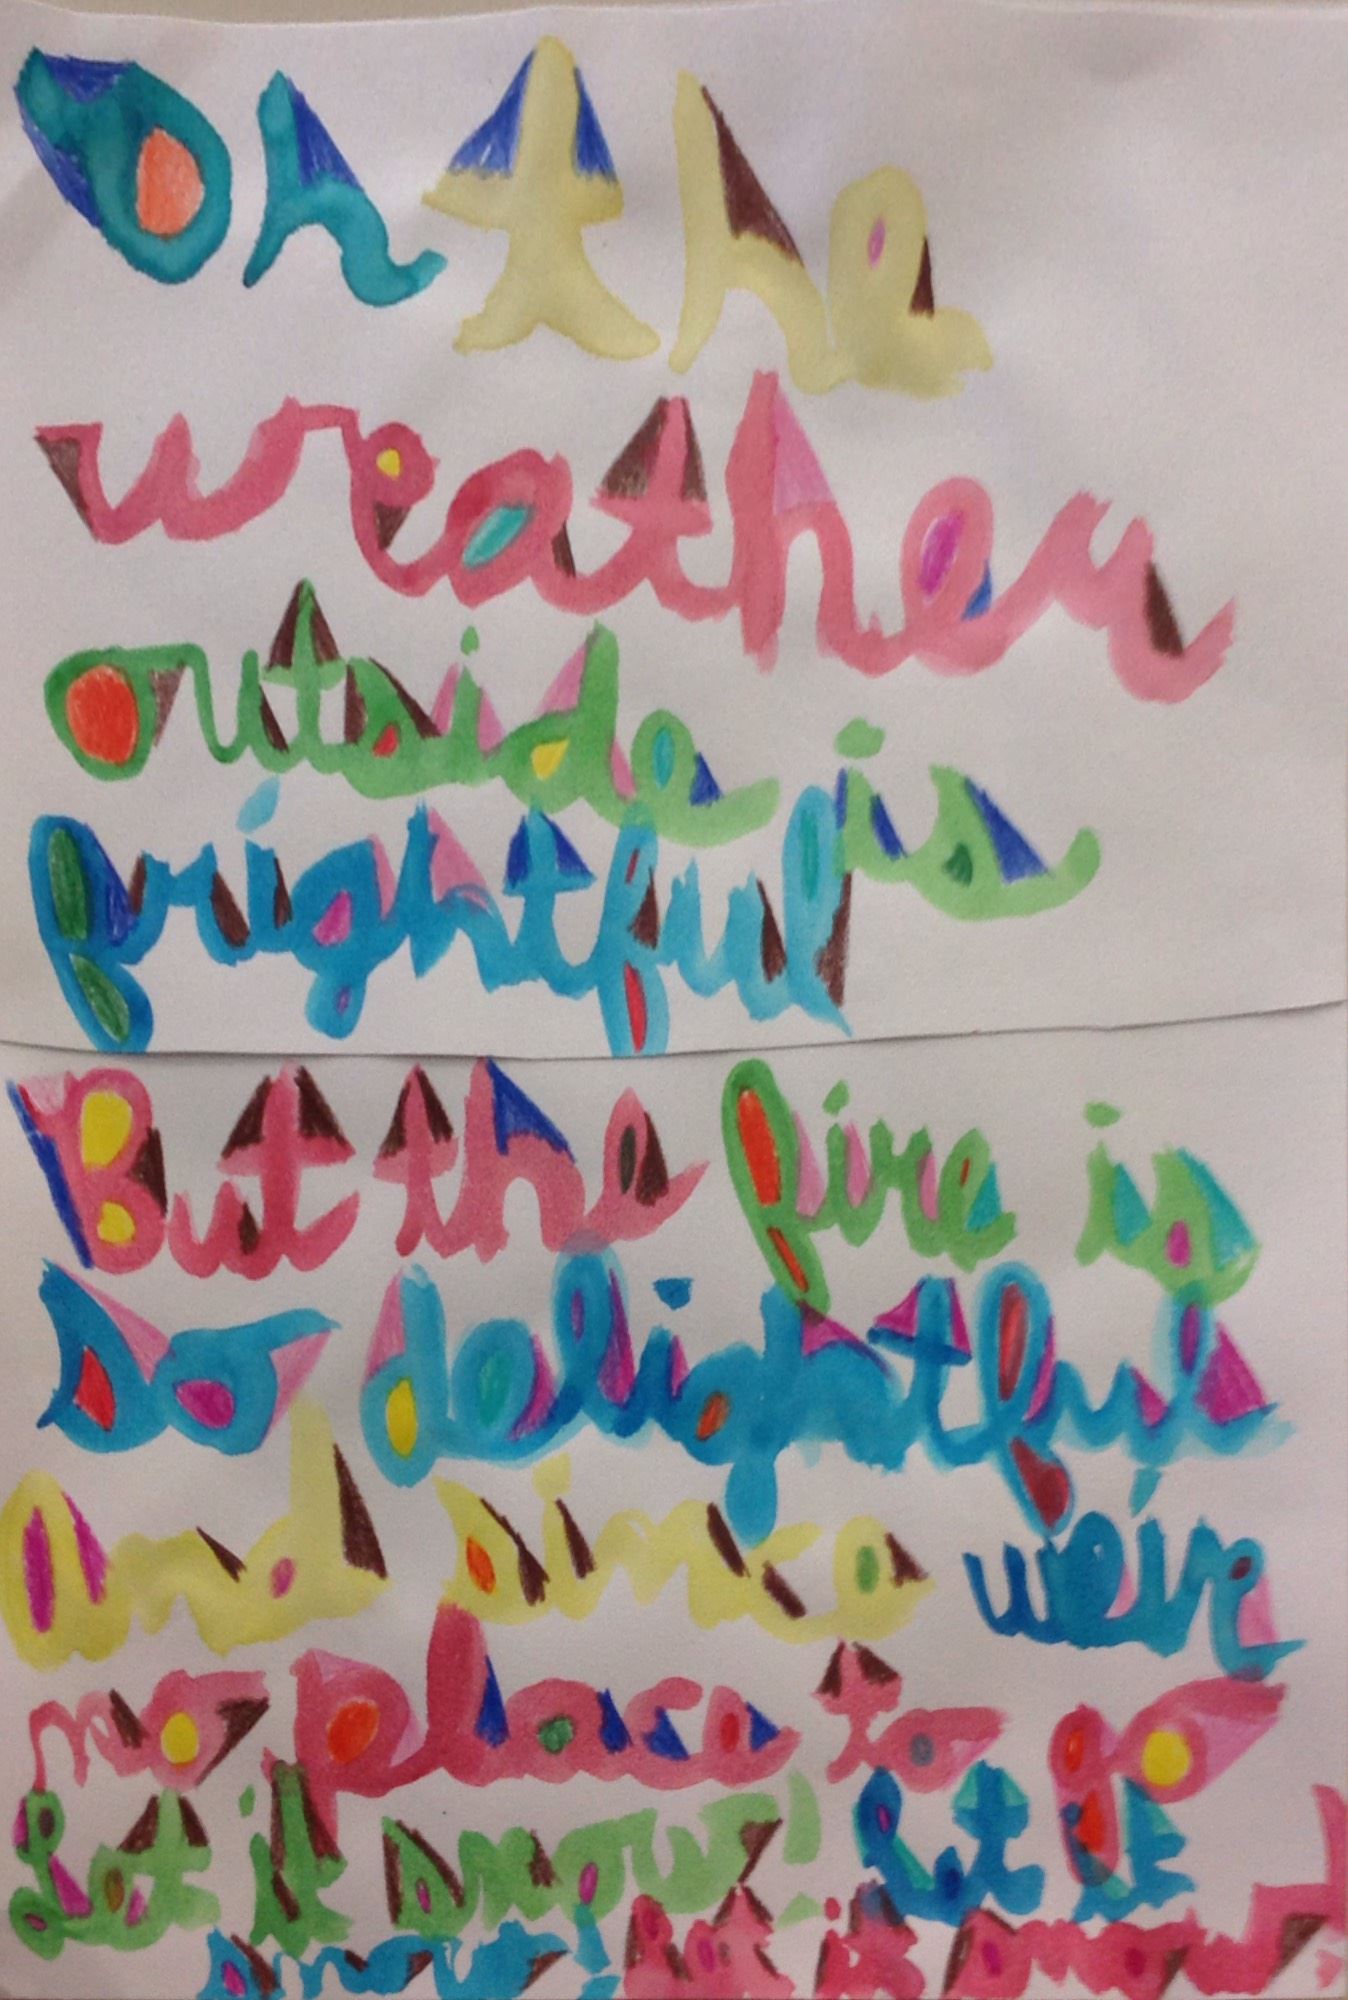 Oh the
weather
outside is
frightful
But the fire is
so delightful
And since we're
no place to go
Let it snow! Let it
snow! Let it snow!